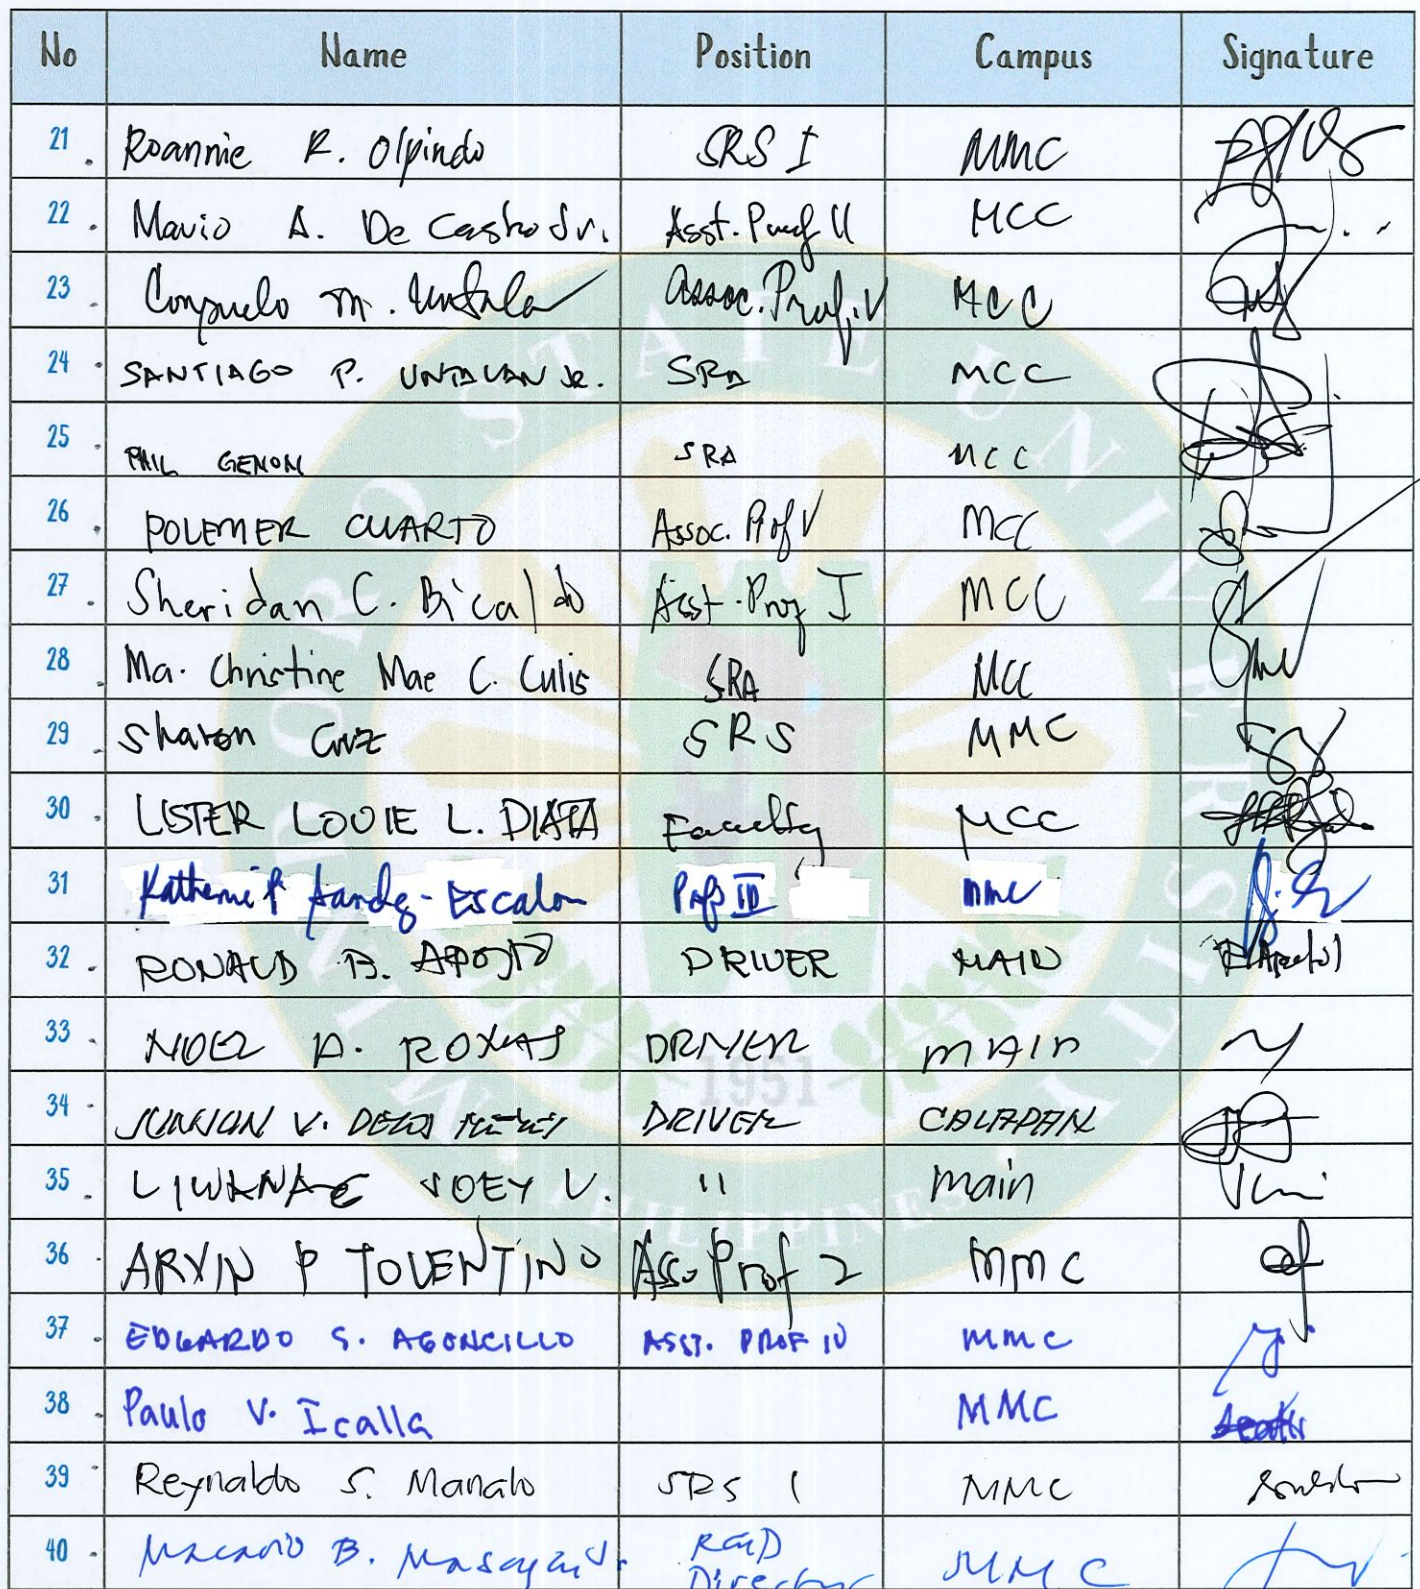 No Name Position Campus Signature
21. Roannie R. Olpindo SRS I MMC
22. Mario A. De Castro Jr. Asst. Prof II MCC
23 Conzuelo m. Untalan Assoc. Prof. V MCC
24. SANTIAGO P. UNTALAN JR. SRA MCC
25. PHIL GENON SRA MCC
26. POLEMER CUARTO Assoc. Prof V MCC
27. Sheridan C. Bicaldo Asst. Prof I MCC
28. Ma. Christine Mae C. Culis SRA MCC
29. Sharon Cruz SRS MMC
30. LISTER LOUIE L. DIATA Faculty MCC
31 Katherine P. Escalon Prof III MMC
32. RONALD B. APOSTOL DRIVER MAIN
33. NOEL A. ROXAS DRIVER MAIN
34. V. DRIVER CALAPAN
35. LIWANAG JOEY V. 11 main
36. ARVIN P TOLENTINO Asso Prof 2 MMC
37. EDGARDO S. AGONCILLO ASST. PROF IV MMC
38. Paulo V. Icalla MMC
39. Reynaldo S. Manalo SRS 1 MMC
40. Macario B. Masagca Jr. R&D MMC
Director
MINDORO STATE UNIVERSITY
1951
PHILIPPINES